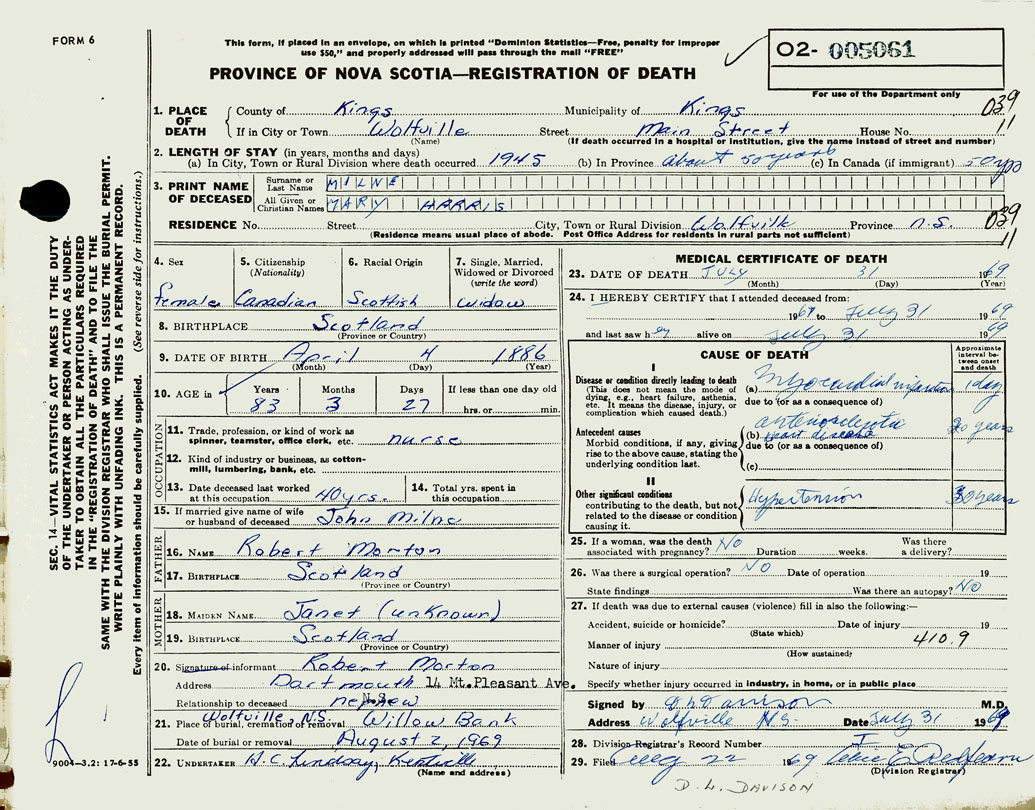 FORM 6
This form, if placed in an envelope, on which is printed "Dominion Statistics—Free, penalty for improper
use $50," and properly addressed will pass through the mail "FREE"
PROVINCE OF NOVA SCOTIA—REGISTRATION OF DEATH
02- 005061
For use of the Department only
039
11
1. PLACE OF DEATH
County of Kings Municipality of Kings
If in City or Town Wolfville Street Main Street House No.
(Name) (If death occurred in a hospital or institution, give the name instead of street and number)
2. LENGTH OF STAY (in years, months and days)
(a) In City, Town or Rural Division where death occurred 1945 (b) In Province about 50 years (c) In Canada (if immigrant) 50 yrs
3. PRINT NAME OF DECEASED
Surname or Last Name MILNE
All Given or Christian Names MARY HARRIS
RESIDENCE No. Street City, Town or Rural Division Wolfville Province N.S.
(Residence means usual place of abode. Post Office Address for residents in rural parts not sufficient)
039
11
4. Sex
Female
5. Citizenship
(Nationality)
Canadian
6. Racial Origin
Scottish
7. Single, Married, Widowed or Divorced
(write the word)
widow
8. BIRTHPLACE Scotland
(Province or Country)
9. DATE OF BIRTH April 4 1886
(Month) (Day) (Year)
10. AGE in Years Months Days If less than one day old
83 3 27 hrs. or min.
OCCUPATION
11. Trade, profession, or kind of work as
spinner, teamster, office clerk, etc. nurse
12. Kind of industry or business, as cotton-
mill, lumbering, bank, etc.
13. Date deceased last worked
at this occupation 40 yrs.
14. Total yrs. spent in
this occupation
15. If married give name of wife
or husband of deceased John Milne
FATHER
16. NAME Robert Morton
17. BIRTHPLACE Scotland
(Province or Country)
MOTHER
18. MAIDEN NAME Janet (unknown)
19. BIRTHPLACE Scotland
(Province or Country)
20. Signature of informant Robert Morton
Address Dartmouth 14 Mt.Pleasant Ave.
N.S.
Relationship to deceased nephew
Wolfville, N.S.
21. Place of burial, cremation or removal Willow Bank
Date of burial or removal August 2, 1969
22. UNDERTAKER H.C. Lindsay, Kentville
(Name and address)
MEDICAL CERTIFICATE OF DEATH
23. DATE OF DEATH JULY 31 1969
(Month) (Day) (Year)
24. I HEREBY CERTIFY that I attended deceased from:
19 to July 31 1969
and last saw her alive on July 31 1969
CAUSE OF DEATH
Approximate interval between onset and death
I
Disease or condition directly leading to death
(This does not mean the mode of
dying, e.g., heart failure, asthenia,
etc. It means the disease, injury, or
complication which caused death.)
(a) Myocardial infarction 1 day
due to (or as a consequence of)
Antecedent causes
Morbid conditions, if any, giving
rise to the above cause, stating the
underlying condition last.
arteriosclerotic
(b) heart disease 20 years
due to (or as a consequence of)
(c)
II
Other significant conditions
contributing to the death, but not
related to the disease or condition
causing it.
Hypertension 30 years
25. If a woman, was the death No Was there
associated with pregnancy? Duration weeks. a delivery?
26. Was there a surgical operation? NO Date of operation 19
State findings Was there an autopsy? NO
27. If death was due to external causes (violence) fill in also the following:—
Accident, suicide or homicide? Date of injury 19
(State which)
410.9
Manner of injury
(How sustained)
Nature of injury
Specify whether injury occurred in industry, in home, or in public place
Signed by M.D.
Address Wolfville NS. Date July 31 1969
28. Division Registrar's Record Number
29. Filed Aug 22 1969
(Division Registrar)
D. L. DAVISON
SEC. 14—VITAL STATISTICS ACT MAKES IT THE DUTY
OF THE UNDERTAKER OR PERSON ACTING AS UNDER-
TAKER TO OBTAIN ALL THE PARTICULARS REQUIRED
IN THE "REGISTRATION OF DEATH" AND TO FILE THE
SAME WITH THE DIVISION REGISTRAR WHO SHALL ISSUE THE BURIAL PERMIT.
WRITE PLAINLY WITH UNFADING INK. THIS IS A PERMANENT RECORD.
Every item of information should be carefully supplied. (See reverse side for instructions.)
9004—3.2: 17-6-55